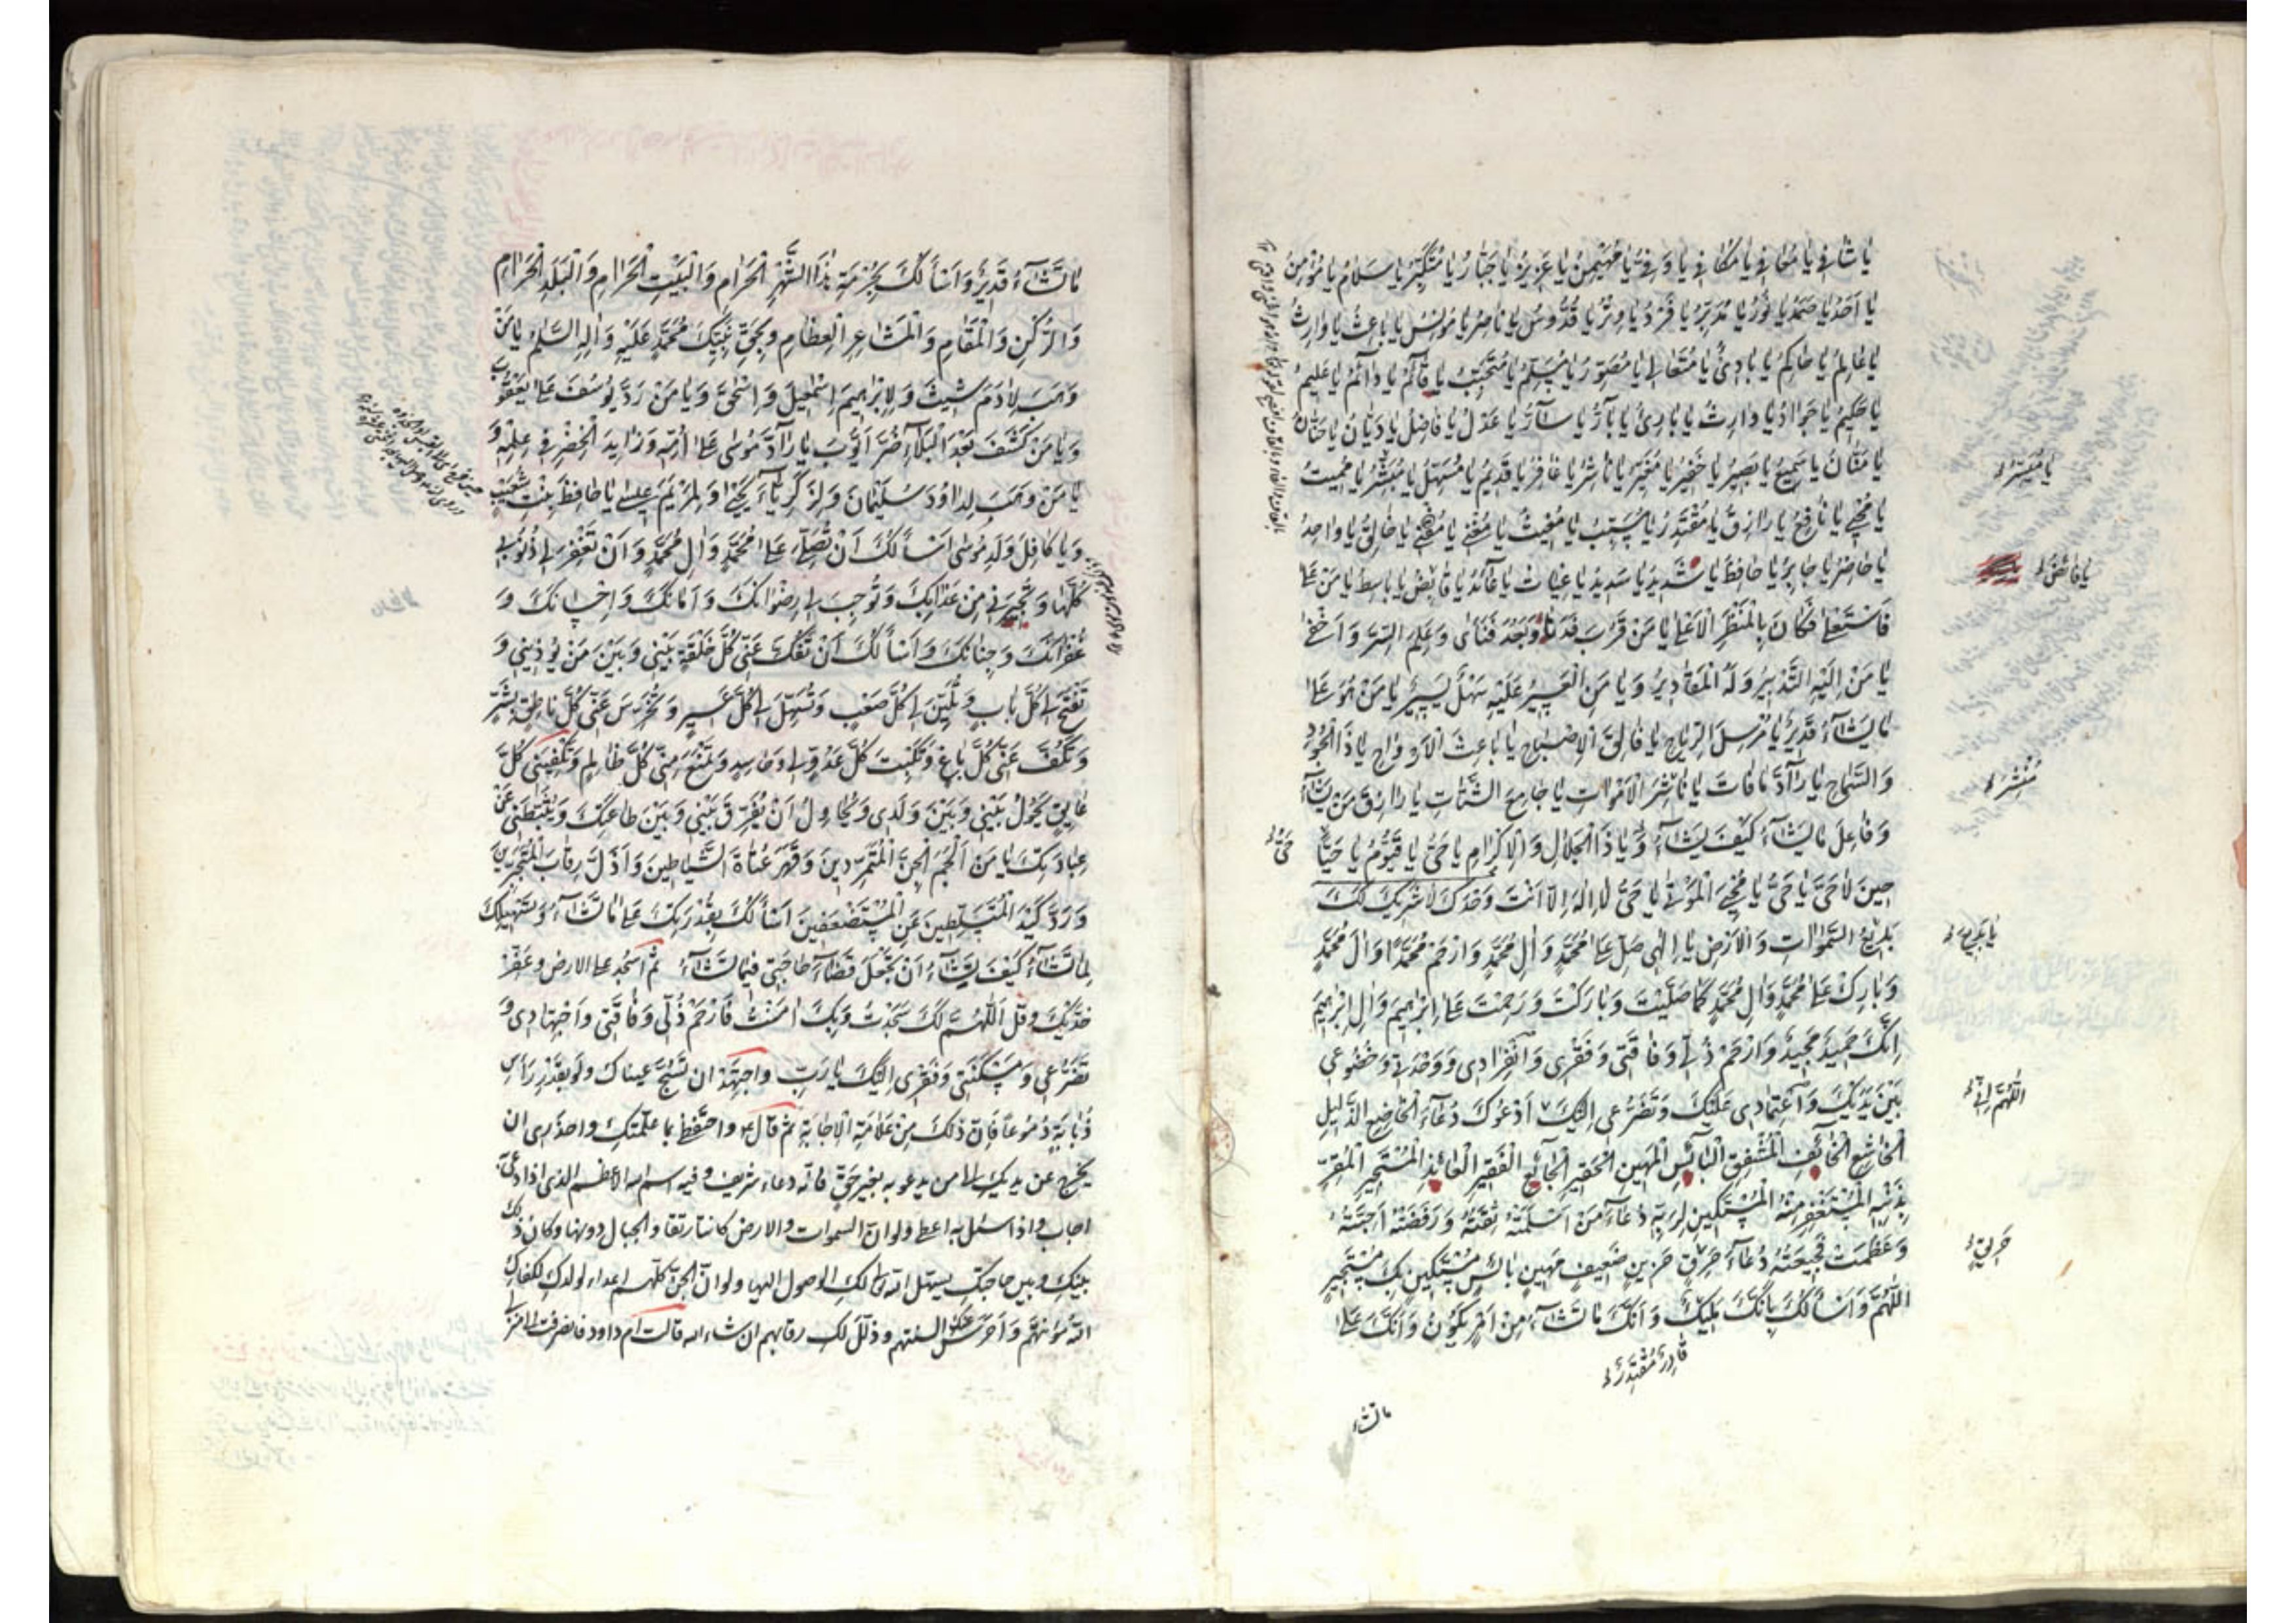 يَا شَافِي يَا مُعَافِي يَا مُكَافِي يَا وَفِيُّ يَا مُهَيْمِنُ يَا عَزِيزُ يَا جَبَّارُ يَا مُتَكَبِّرُ يَا سَلَامُ يَا مُؤْمِنُ
يَا اَحَدُ يَا صَمَدُ يَا نُورُ يَا مُدَبِّرُ يَا فَرْدُ يَا وِتْرُ يَا قُدُّوسُ يَا نَاصِرُ يَا مُونِسُ يَا بَاعِثُ يَا وَارِثُ
يَا عَالِمُ يَا حَاكِمُ يَا بَادِئُ يَا مُتَعَالِي يَا مُصَوِّرُ يَا مُسَلِّمُ يَا مُتَحَبِّبُ يَا قَائِمُ يَا دَائِمُ يَا عَلِيمُ
يَا حَكِيمُ يَا جَوَادُ يَا وَارِثُ يَا بَارِئُ يَا بَارُّ يَا سَارُّ يَا عَدْلُ يَا فَاضِلُ يَا دَيَّانُ يَا حَنَّانُ
يَا مَنَّانُ يَا سَمِيعُ يَا بَصِيرُ يَا خَفِيرُ يَا مُغَيِّرُ يَا نَاشِرُ يَا غَافِرُ يَا قَدِيمُ يَا مُسَهِّلُ يَا مُبَشِّرُ يَا مُمِيتُ
يَا مُيَسِّرُ
يَا مُحْيِي يَا نَافِعُ يَا رَازِقُ يَا مُقْتَدِرُ يَا مُسَبِّبُ يَا مُغِيثُ يَا مُغْنِي يَا مُقْنِي يَا خَالِقُ يَا وَاحِدُ
يَا حَاضِرُ يَا جَابِرُ يَا حَافِظُ يَا شَدِيدُ يَا سَدِيدُ يَا غِيَاثُ يَا عَائِدُ يَا قَابِضُ يَا بَاسِطُ يَا مَنْ عَلَا
فَاسْتَعْلَى فَكَانَ بِالْمَنْظَرِ الْاَعْلَى يَا مَنْ قَرُبَ فَدَنَا وَبَعُدَ فَنَاَى وَعَلِمَ السِّرَّ وَاَخْفَى
يَا مَنْ اِلَيْهِ التَّدْبِيرُ وَلَهُ الْمَقَادِيرُ وَيَا مَنِ الْعَسِيرُ عَلَيْهِ سَهْلٌ يَسِيرٌ يَا مَنْ هُوَ عَلَى
مَا يَشَاءُ قَدِيرٌ يَا مُرْسِلَ الرِّيَاحِ يَا فَالِقَ الْاِصْبَاحِ يَا بَاعِثَ الْاَرْوَاحِ يَا ذَا الْجُودِ
وَالسَّمَاحِ يَا رَادَّ مَا فَاتَ يَا نَاشِرَ الْاَمْوَاتِ يَا جَامِعَ الشَّتَاتِ يَا رَازِقَ مَنْ يَشَاءُ
مُنْشِرَ
وَفَاعِلَ مَا يَشَاءُ كَيْفَ يَشَاءُ وَيَا ذَا الْجَلَالِ وَالْاِكْرَامِ يَا حَيُّ يَا قَيُّومُ يَا حَيًّا
حَيُّ
حِينَ لَا حَيَّ يَا حَيُّ يَا مُحْيِيَ الْمَوْتَى يَا حَيُّ لَا اِلٰهَ اِلَّا اَنْتَ وَحْدَكَ لَا شَرِيكَ لَكَ
بَدِيعُ السَّمٰوَاتِ وَالْاَرْضِ يَا اِلٰهِي صَلِّ عَلَى مُحَمَّدٍ وَاٰلِ مُحَمَّدٍ وَارْحَمْ مُحَمَّدًا وَاٰلَ مُحَمَّدٍ
يَا بَدِيعَ
وَبَارِكْ عَلَى مُحَمَّدٍ وَاٰلِ مُحَمَّدٍ كَمَا صَلَّيْتَ وَبَارَكْتَ وَرَحِمْتَ عَلَى اِبْرٰهِيمَ وَاٰلِ اِبْرٰهِيمَ
اِنَّكَ حَمِيدٌ مَجِيدٌ وَارْحَمْ ذُلِّي وَفَاقَتِي وَفَقْرِي وَانْفِرَادِي وَوَحْدَتِي وَخُضُوعِي
بَيْنَ يَدَيْكَ وَاعْتِمَادِي عَلَيْكَ وَتَضَرُّعِي اِلَيْكَ اَدْعُوكَ دُعَاءَ الْخَاضِعِ الذَّلِيلِ
اَللّٰهُمَّ اِنِّي
الْخَاشِعِ الْخَائِفِ الْمُشْفِقِ الْبَائِسِ الْمَهِينِ الْحَقِيرِ الْجَائِعِ الْفَقِيرِ الْعَائِذِ الْمُسْتَجِيرِ الْمُقِرِّ
بِذَنْبِهِ الْمُسْتَغْفِرِ مِنْهُ الْمُسْتَكِينِ لِرَبِّهِ دُعَاءَ مَنْ اَسْلَمَتْهُ ثِقَتُهُ وَرَفَضَتْهُ اَحِبَّتُهُ
وَعَظُمَتْ فَجِيعَتُهُ دُعَاءَ حَرِقٍ حَزِينٍ ضَعِيفٍ مَهِينٍ بَائِسٍ مُسْتَكِينٍ بِكَ مُسْتَجِيرٍ
اَللّٰهُمَّ وَاَسْاَلُكَ بِاَنَّكَ مَلِيكٌ وَاَنَّكَ مَا تَشَاءُ مِنْ اَمْرٍ يَكُونُ وَاَنَّكَ عَلَى
قَادِرٌ مُقْتَدِرٌ
ما تشاء
مَا تَشَاءُ قَدِيرٌ وَاَسْاَلُكَ بِحُرْمَةِ هٰذَا الشَّهْرِ الْحَرَامِ وَالْبَيْتِ الْحَرَامِ وَالْبَلَدِ الْحَرَامِ
وَالرُّكْنِ وَالْمَقَامِ وَالْمَشَاعِرِ الْعِظَامِ وَبِحَقِّ نَبِيِّكَ مُحَمَّدٍ عَلَيْهِ وَاٰلِهِ السَّلَامُ يَا مَنْ
وَهَبَ لِاٰدَمَ شِيثَ وَلِاِبْرٰهِيمَ اِسْمٰعِيلَ وَاِسْحٰقَ وَيَا مَنْ رَدَّ يُوسُفَ عَلَى يَعْقُوبَ
وَيَا مَنْ كَشَفَ بَعْدَ الْبَلَاءِ ضُرَّ اَيُّوبَ يَا رَادَّ مُوسَى عَلَى اُمِّهِ وَزَايِدَ الْخِضْرِ فِي عِلْمِهِ وَ
يَا مَنْ وَهَبَ لِدَاوُدَ سُلَيْمَانَ وَلِزَكَرِيَّاءَ يَحْيَى وَلِمَرْيَمَ عِيسَى يَا حَافِظَ بِنْتِ شُعَيْبٍ
وَيَا كَافِلَ وَلَدِ مُوسَى اَسْاَلُكَ اَنْ تُصَلِّيَ عَلَى مُحَمَّدٍ وَاٰلِ مُحَمَّدٍ وَاَنْ تَغْفِرَ لِي ذُنُوبِي
كُلَّهَا وَتُجِيرَنِي مِنْ عَذَابِكَ وَتُوجِبَ لِي رِضْوَانَكَ وَاَمَانَكَ وَاِحْسَانَكَ وَ
غُفْرَانَكَ وَجِنَانَكَ وَاَسْاَلُكَ اَنْ تَفُكَّ عَنِّي كُلَّ حَلْقَةٍ بَيْنِي وَبَيْنَ مَنْ يُؤْذِينِي وَ
تَفْتَحَ لِي كُلَّ بَابٍ وَتُلَيِّنَ لِي كُلَّ صَعْبٍ وَتُسَهِّلَ لِي كُلَّ عَسِيرٍ وَتُخْرِسَ عَنِّي كُلَّ نَاطِقٍ بِشَرٍّ
وَتَكُفَّ عَنِّي كُلَّ بَاغٍ وَتَكْبِتَ كُلَّ عَدُوٍّ لِي وَحَاسِدٍ وَتَمْنَعَ مِنِّي كُلَّ ظَالِمٍ وَتَكْفِيَنِي كُلَّ
عَايِقٍ يَحُولُ بَيْنِي وَبَيْنَ وَلَدِي وَيُحَاوِلُ اَنْ يُفَرِّقَ بَيْنِي وَبَيْنَ طَاعَتِكَ وَيُثَبِّطَنِي عَنْ
عِبَادَتِكَ يَا مَنْ اَلْجَمَ الْجِنَّ الْمُتَمَرِّدِينَ وَقَهَرَ عُتَاةَ الشَّيَاطِينِ وَاَذَلَّ رِقَابَ الْمُتَجَبِّرِينَ
وَرَدَّ كَيْدَ الْمُتَسَلِّطِينَ عَنِ الْمُسْتَضْعَفِينَ اَسْاَلُكَ بِقُدْرَتِكَ عَلَى مَا تَشَاءُ وَتَسْهِيلِكَ
لِمَا تَشَاءُ كَيْفَ تَشَاءُ اَنْ تَجْعَلَ قَضَاءَ حَاجَتِي فِيمَا تَشَاءُ ثم اسجد على الارض وعفر
خديك وقل اَللّٰهُمَّ لَكَ سَجَدْتُ وَبِكَ اٰمَنْتُ فَارْحَمْ ذُلِّي وَفَاقَتِي وَاجْتِهَادِي وَ
تَضَرُّعِي وَمَسْكَنَتِي وَفَقْرِي اِلَيْكَ يَا رَبِّ واجتهد ان تسح عيناك ولو بقدر راس
ذُبابة دموعاً فان ذلك من علامة الاجابة ثم قال واحتفظ بما علمتك واحذري ان
يخرج عن يديك الى من يدعو به بغير حق فانه دعاء شريف وفيه اسم الله الاعظم الذي اذا دعي به
اجاب واذا سئل به اعطى ولو ان السموات والارض كانتا رتقا والجبال دونها وكان ذلك
بينك وبين حاجتك يسهل الله تعالى لك الوصول اليها ولو ان الجن كلهم اعداء لولدك لكفاك
الله مؤنتهم واخرس عنك السنتهم وذلل لك رقابهم ان شاء الله قالت ام داود فانصرفت الى منزلي